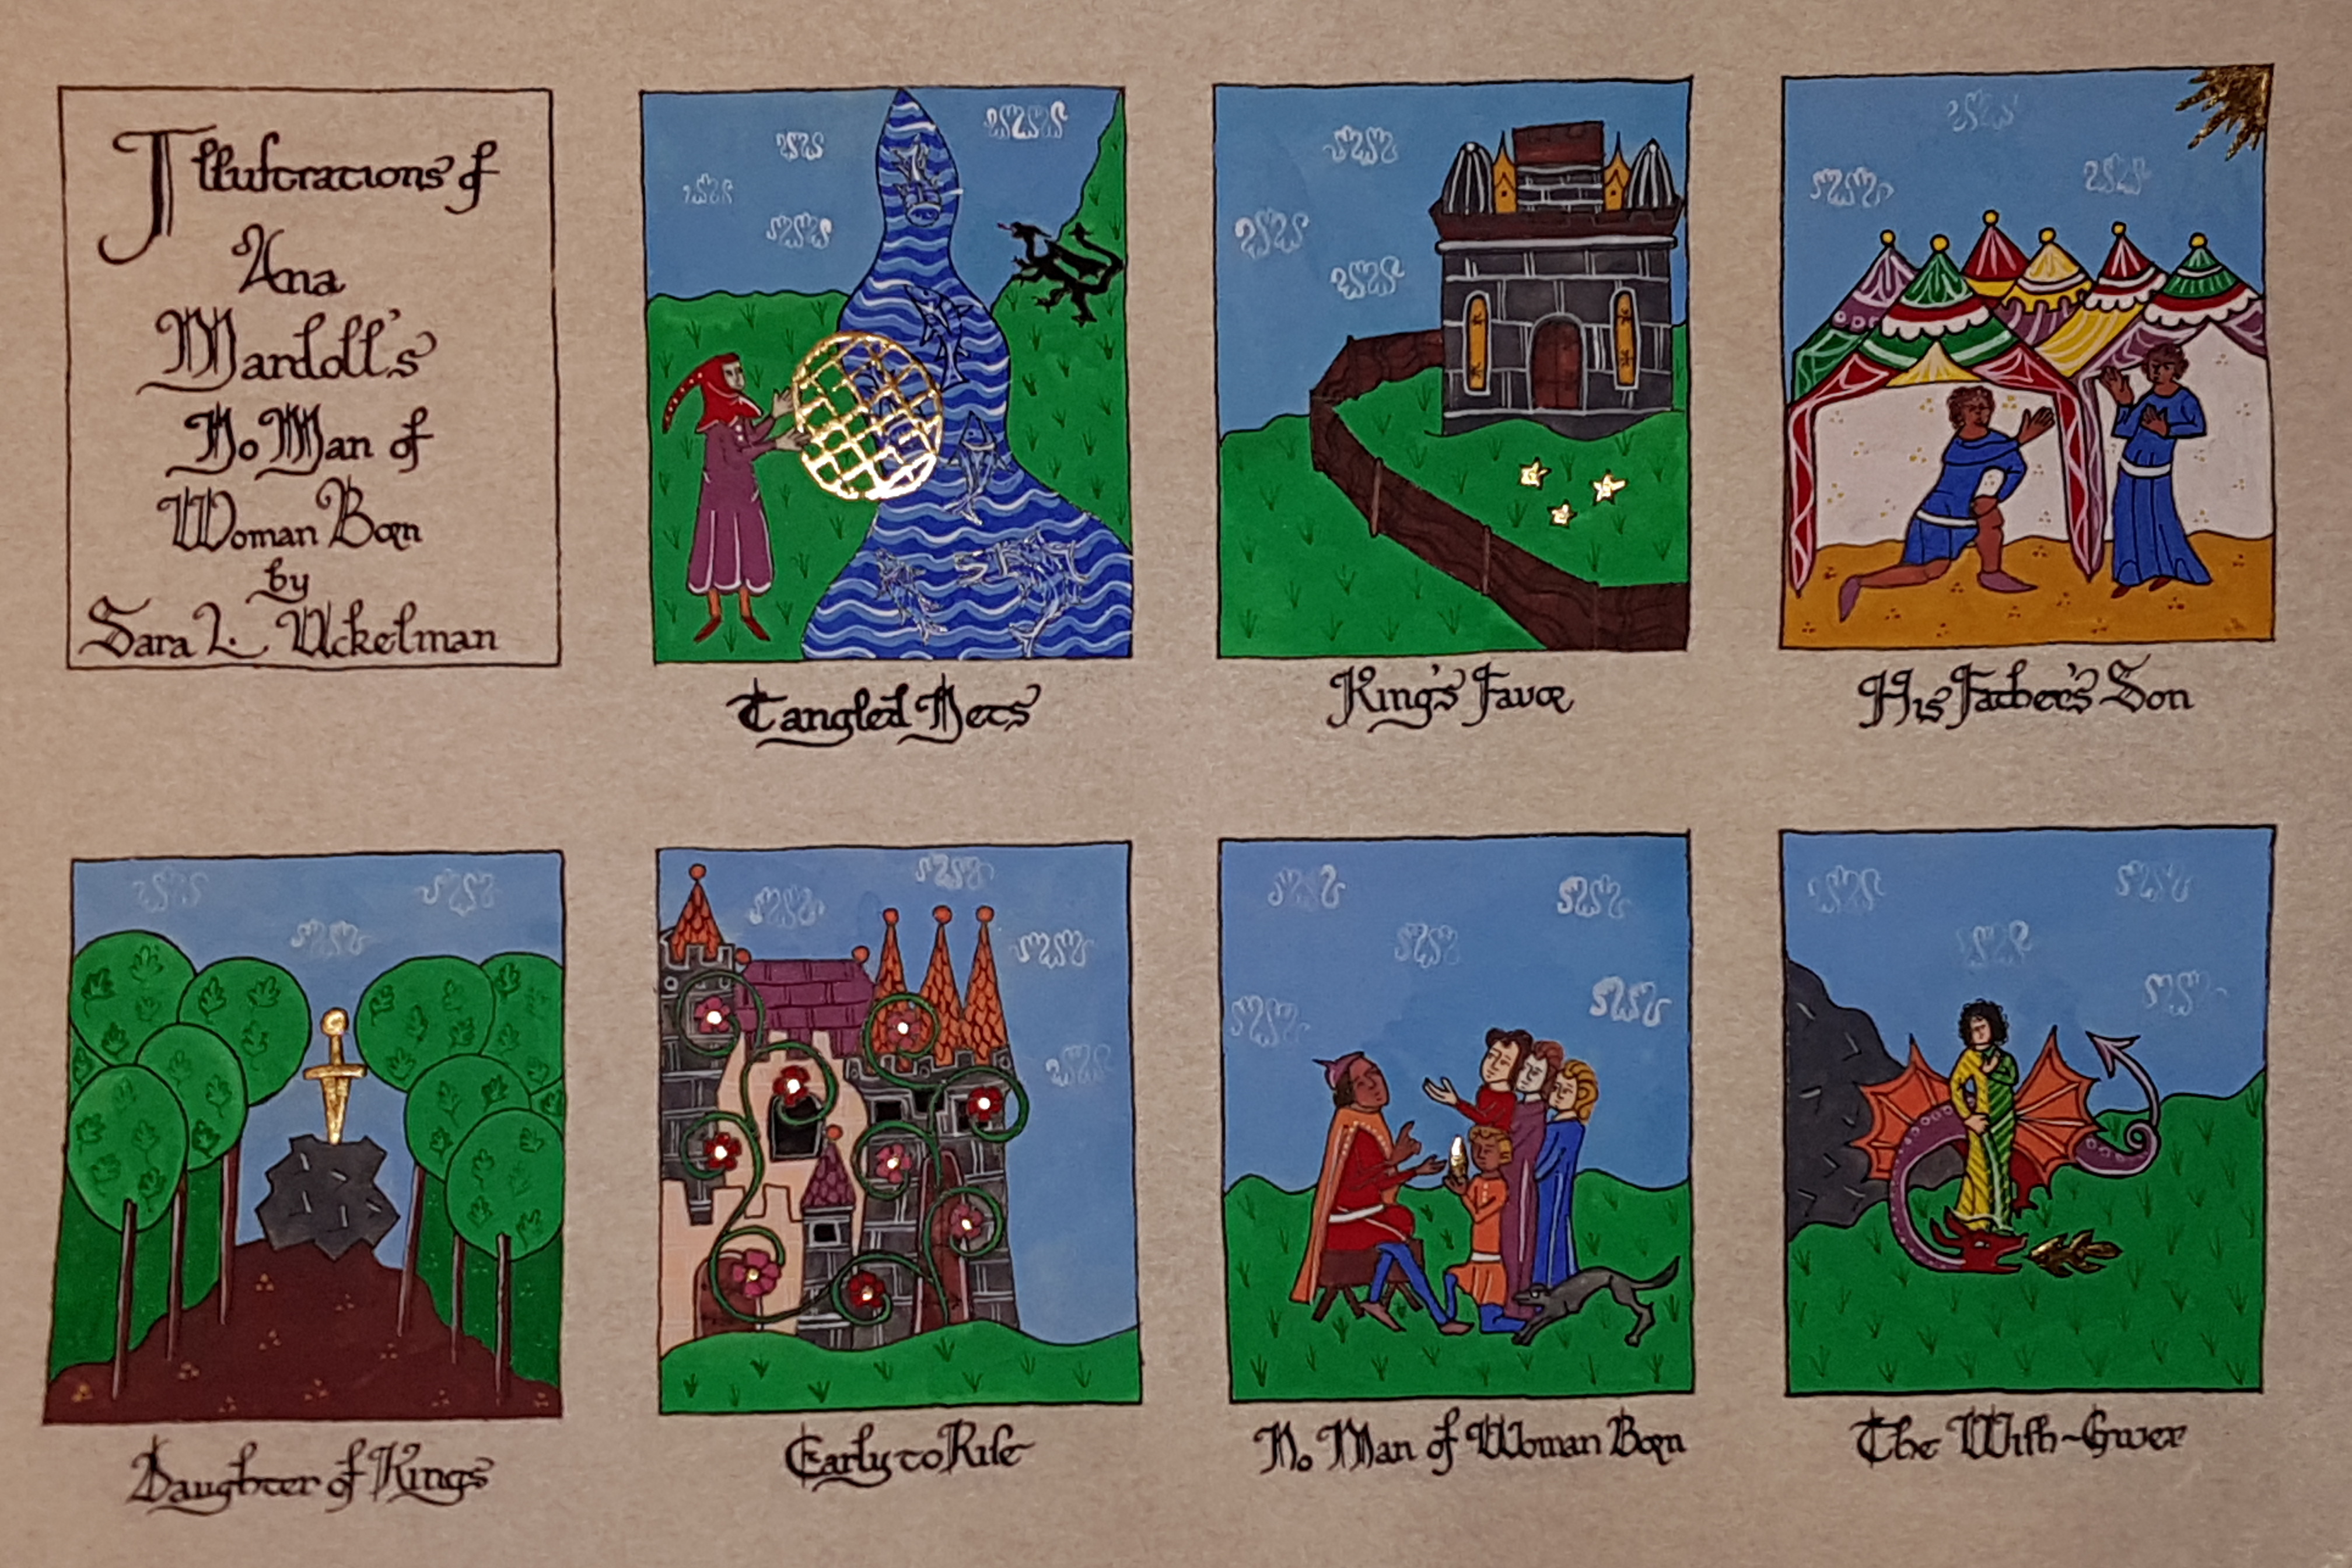 Illustrations of
Ana
Mardoll's
No Man of
Woman Born
by
Sara L. Uckelman
Tangled Nets
King's Favor
His Father's Son
Daughter of Kings
Early to Rise
No Man of Woman Born
The Wish-Giver